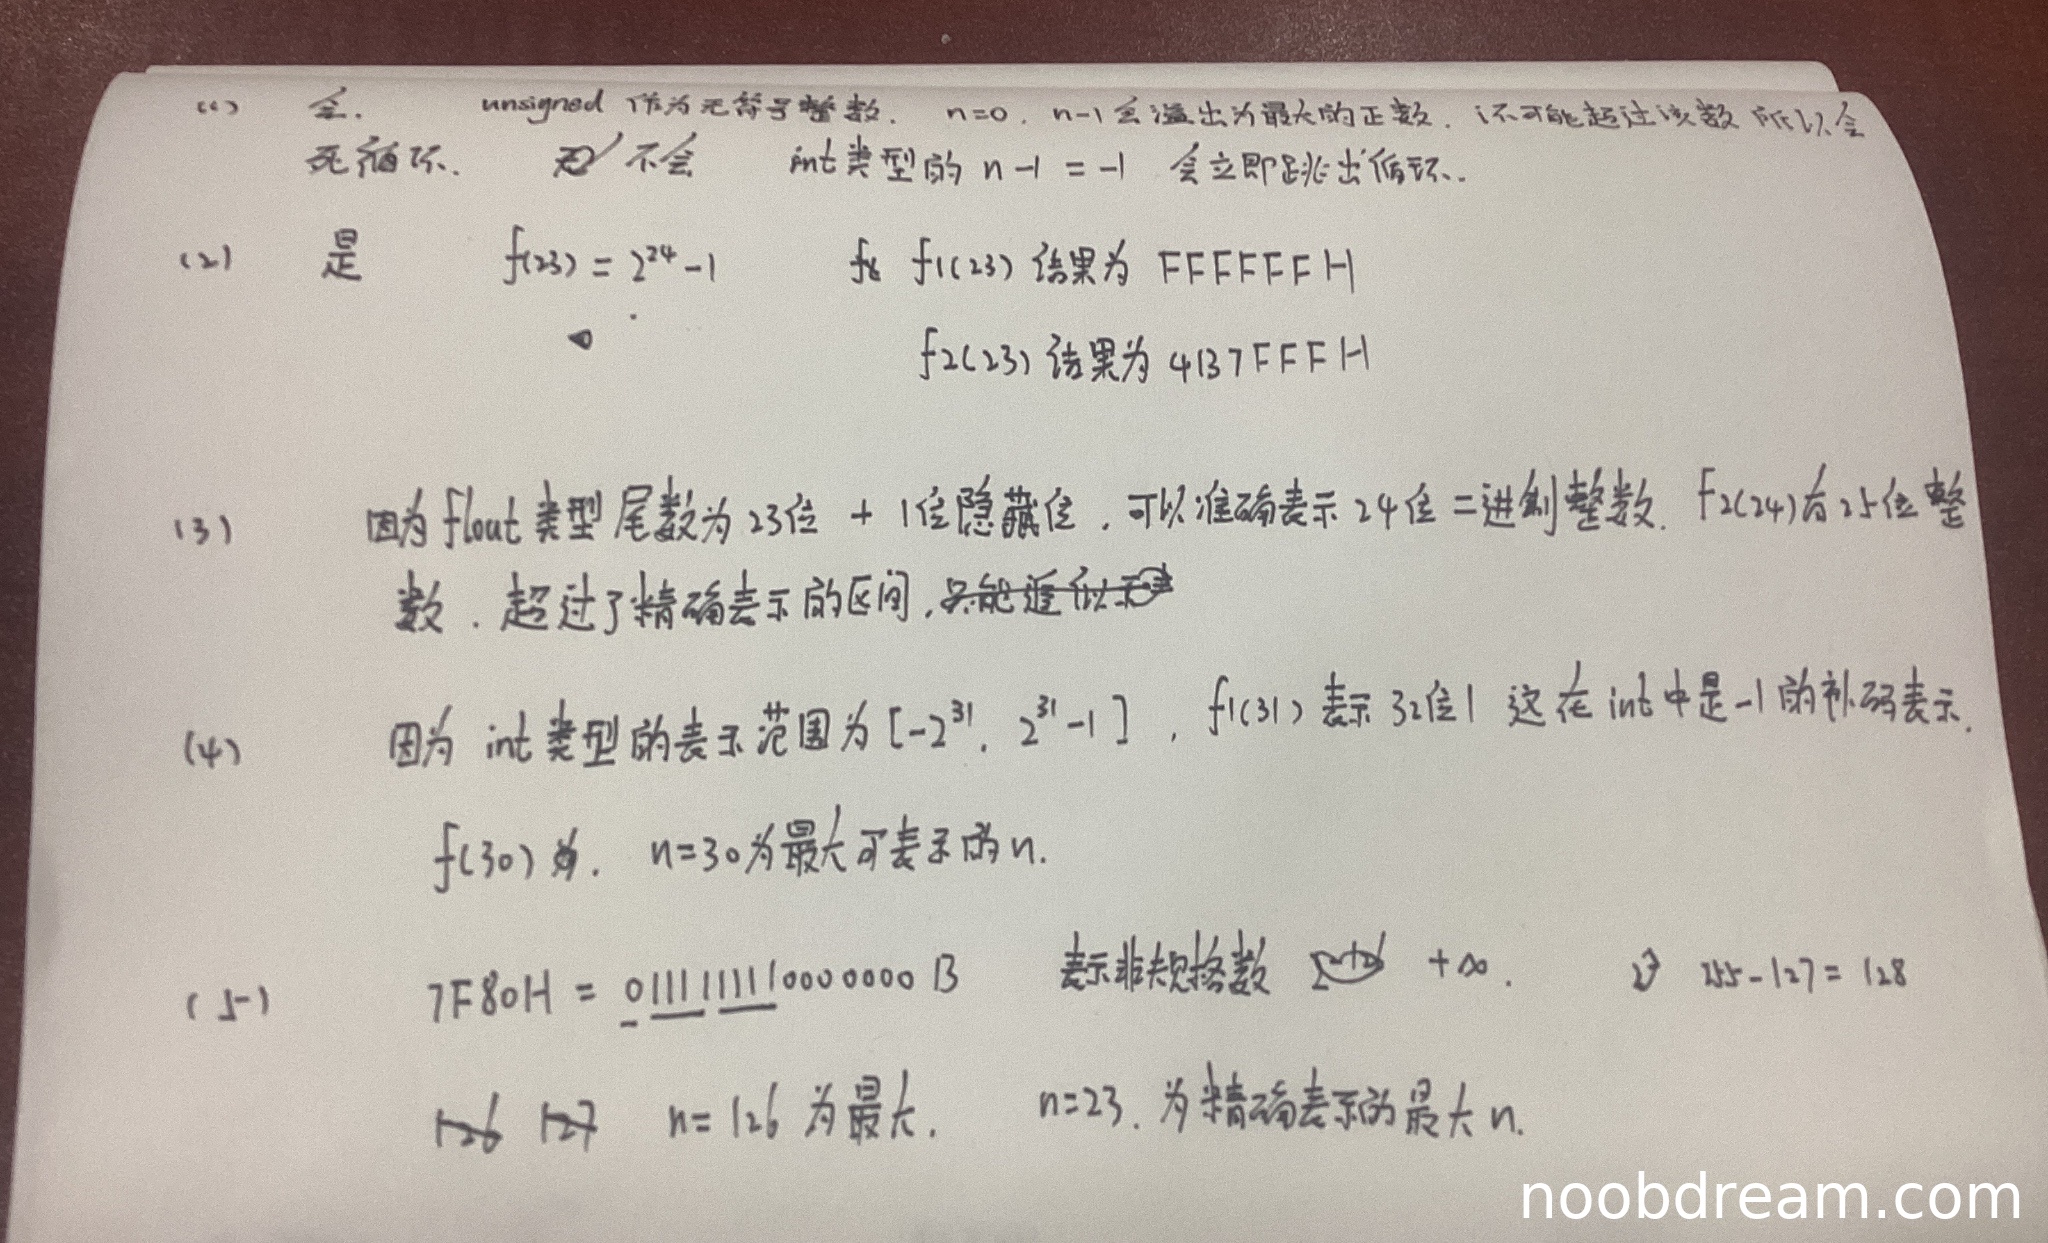 (1) 会. unsigned 作为无符号整数. n=0. n-1会溢出为最大的正数. i不可能超过该数 所以会
死循环. 不会 int类型的 n-1 = -1 会立即跳出循环.
(2) 是 f(23) = 2²⁴-1 f1(23) 结果为 FFFFFFH
f2(23) 结果为 4B7FFFH
(3) 因为 float 类型尾数为23位 + 1位隐藏位, 可以准确表示24位二进制整数. f2(24)有25位整
数. 超过了精确表示的区间.
(4) 因为 int 类型的表示范围为 [-2³¹, 2³¹-1], f1(31) 表示 32位1 这在 int 中是-1的补码表示.
f(30) 为. n=30为最大可表示的n.
(5) 7F80H = 0111111110000000B 表示非规格数 +∞. 255-127=128
126 127 n=126 为最大. n=23. 为精确表示的最大n.
noobdream.com